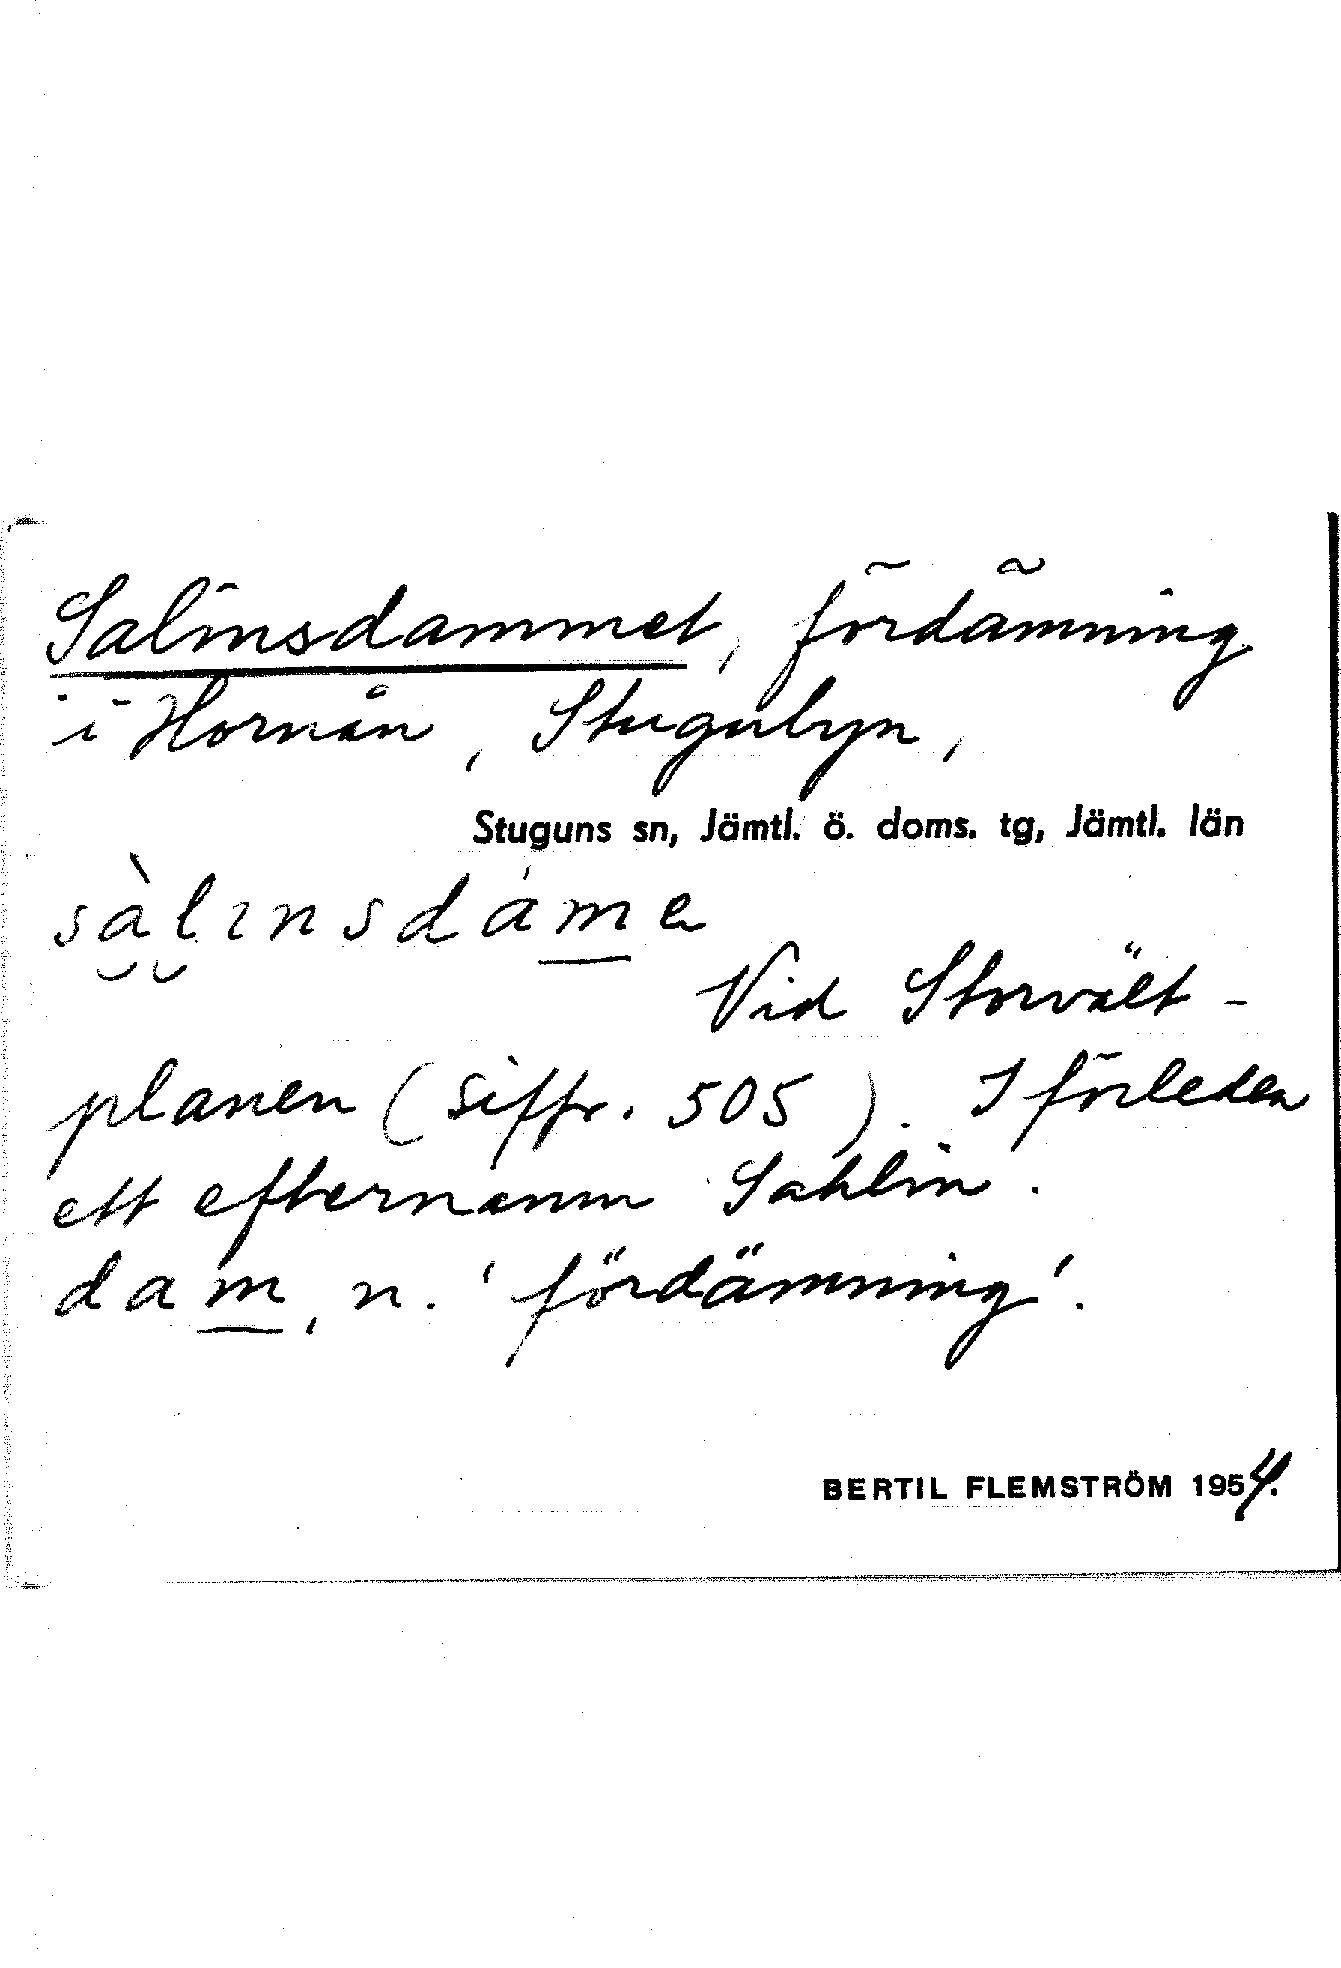 Salinsdammet, fördämning
i Hornån, Stugubyn,
Stuguns sn, Jämtl. ö. doms. tg, Jämtl. län
sàlinsdáme
Vid Storvält-
planen (siffr. 505). I förleden
ett efternamn Sahlin.
dam, n. 'fördämning'.
BERTIL FLEMSTRÖM 1954.